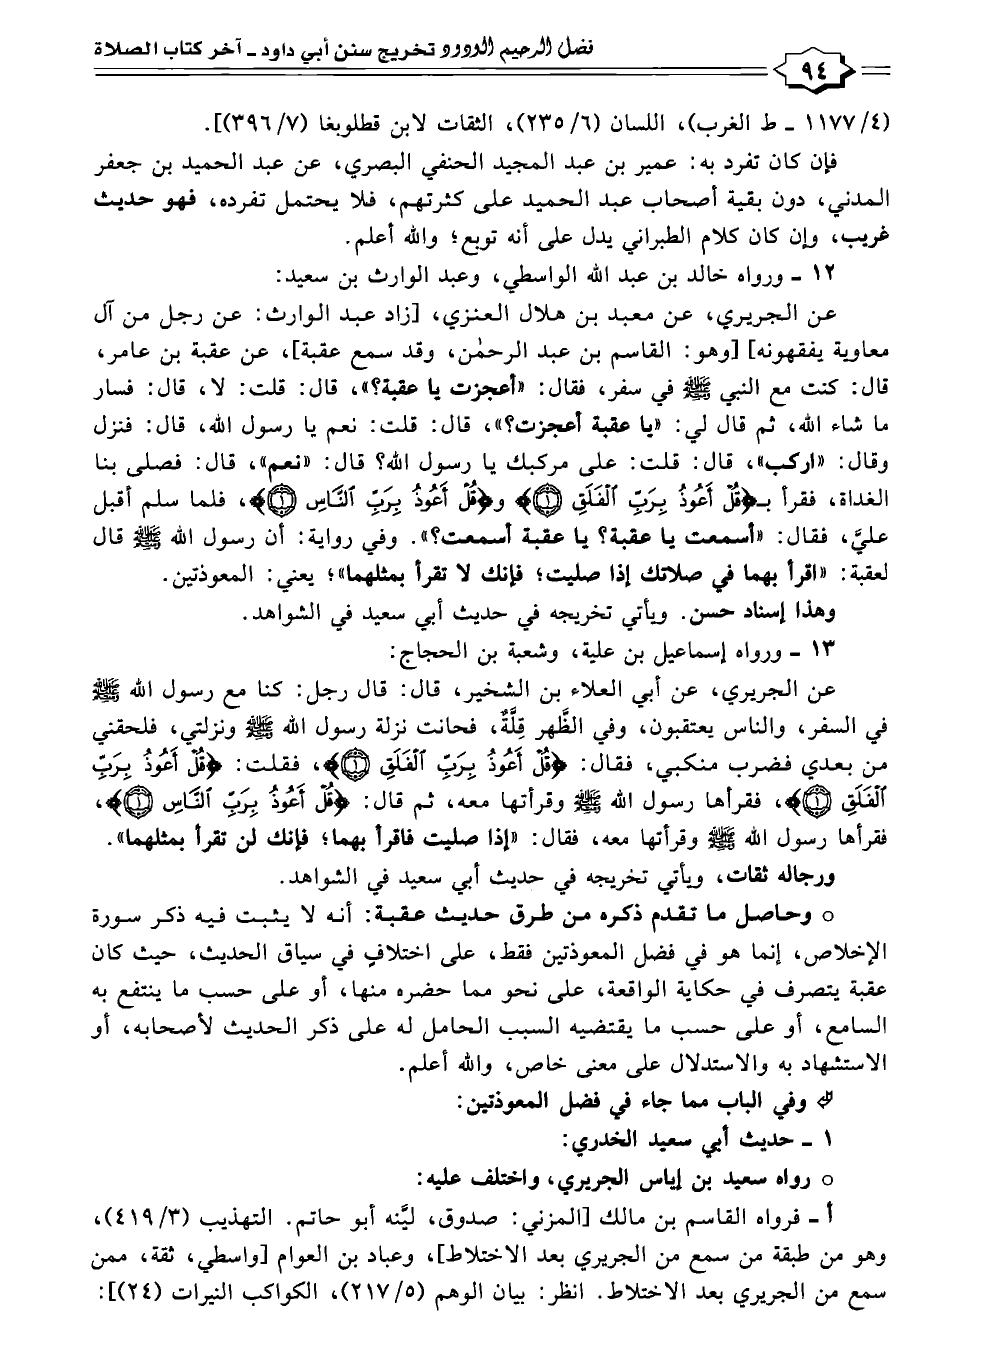 فضل الرحيم الودود تخريج سنن أبي داود ـ آخر كتاب الصلاة
٩٤
(٤/ ١١٧٧ ـ ط الغرب)، اللسان (٦/ ٢٣٥)، الثقات لابن قطلوبغا (٧/ ٣٩٦)].
فإن كان تفرد به: عمير بن عبد المجيد الحنفي البصري، عن عبد الحميد بن جعفر
المدني، دون بقية أصحاب عبد الحميد على كثرتهم، فلا يحتمل تفرده، فهو حديث
غريب، وإن كان كلام الطبراني يدل على أنه توبع؛ والله أعلم.
١٢ ـ ورواه خالد بن عبد الله الواسطي، وعبد الوارث بن سعيد:
عن الجريري، عن معبد بن هلال العنزي، [زاد عبد الوارث: عن رجل من آل
معاوية يفقهونه] [وهو: القاسم بن عبد الرحمٰن، وقد سمع عقبة]، عن عقبة بن عامر،
قال: كنت مع النبي ﷺ في سفر، فقال: «أعجزت يا عقبة؟»، قال: قلت: لا، قال: فسار
ما شاء الله، ثم قال لي: «يا عقبة أعجزت؟»، قال: قلت: نعم يا رسول الله، قال: فنزل
وقال: «اركب»، قال: قلت: على مركبك يا رسول الله؟ قال: «نعم»، قال: فصلى بنا
الغداة، فقرأ بـ﴿قُلۡ أَعُوذُ بِرَبِّ ٱلۡفَلَقِ ۝١﴾ و﴿قُلۡ أَعُوذُ بِرَبِّ ٱلنَّاسِ ۝١﴾، فلما سلم أقبل
عليَّ، فقال: «أسمعت يا عقبة؟ يا عقبة أسمعت؟». وفي رواية: أن رسول الله ﷺ قال
لعقبة: «اقرأ بهما في صلاتك إذا صليت؛ فإنك لا تقرأ بمثلهما»؛ يعني: المعوذتين.
وهذا إسناد حسن. ويأتي تخريجه في حديث أبي سعيد في الشواهد.
١٣ ـ ورواه إسماعيل بن علية، وشعبة بن الحجاج:
عن الجريري، عن أبي العلاء بن الشخير، قال: قال رجل: كنا مع رسول الله ﷺ
في السفر، والناس يعتقبون، وفي الظَّهر قِلَّةٌ، فحانت نزلة رسول الله ﷺ ونزلتي، فلحقني
من بعدي فضرب منكبي، فقال: ﴿قُلۡ أَعُوذُ بِرَبِّ ٱلۡفَلَقِ ۝١﴾، فقلت: ﴿قُلۡ أَعُوذُ بِرَبِّ
ٱلۡفَلَقِ ۝١﴾، فقرأها رسول الله ﷺ وقرأتها معه، ثم قال: ﴿قُلۡ أَعُوذُ بِرَبِّ ٱلنَّاسِ ۝١﴾،
فقرأها رسول الله ﷺ وقرأتها معه، فقال: «إذا صليت فاقرأ بهما؛ فإنك لن تقرأ بمثلهما».
ورجاله ثقات، ويأتي تخريجه في حديث أبي سعيد في الشواهد.
○ وحاصل ما تقدم ذكره من طرق حديث عقبة: أنه لا يثبت فيه ذكر سورة
الإخلاص، إنما هو في فضل المعوذتين فقط، على اختلافٍ في سياق الحديث، حيث كان
عقبة يتصرف في حكاية الواقعة، على نحو مما حضره منها، أو على حسب ما ينتفع به
السامع، أو على حسب ما يقتضيه السبب الحامل له على ذكر الحديث لأصحابه، أو
الاستشهاد به والاستدلال على معنى خاص، والله أعلم.
وفي الباب مما جاء في فضل المعوذتين:
١ ـ حديث أبي سعيد الخدري:
○ رواه سعيد بن إياس الجريري، واختلف عليه:
أ ـ فرواه القاسم بن مالك [المزني: صدوق، ليَّنه أبو حاتم. التهذيب (٣/ ٤١٩)،
وهو من طبقة من سمع من الجريري بعد الاختلاط]، وعباد بن العوام [واسطي، ثقة، ممن
سمع من الجريري بعد الاختلاط. انظر: بيان الوهم (٥/ ٢١٧)، الكواكب النيرات (٢٤)]: